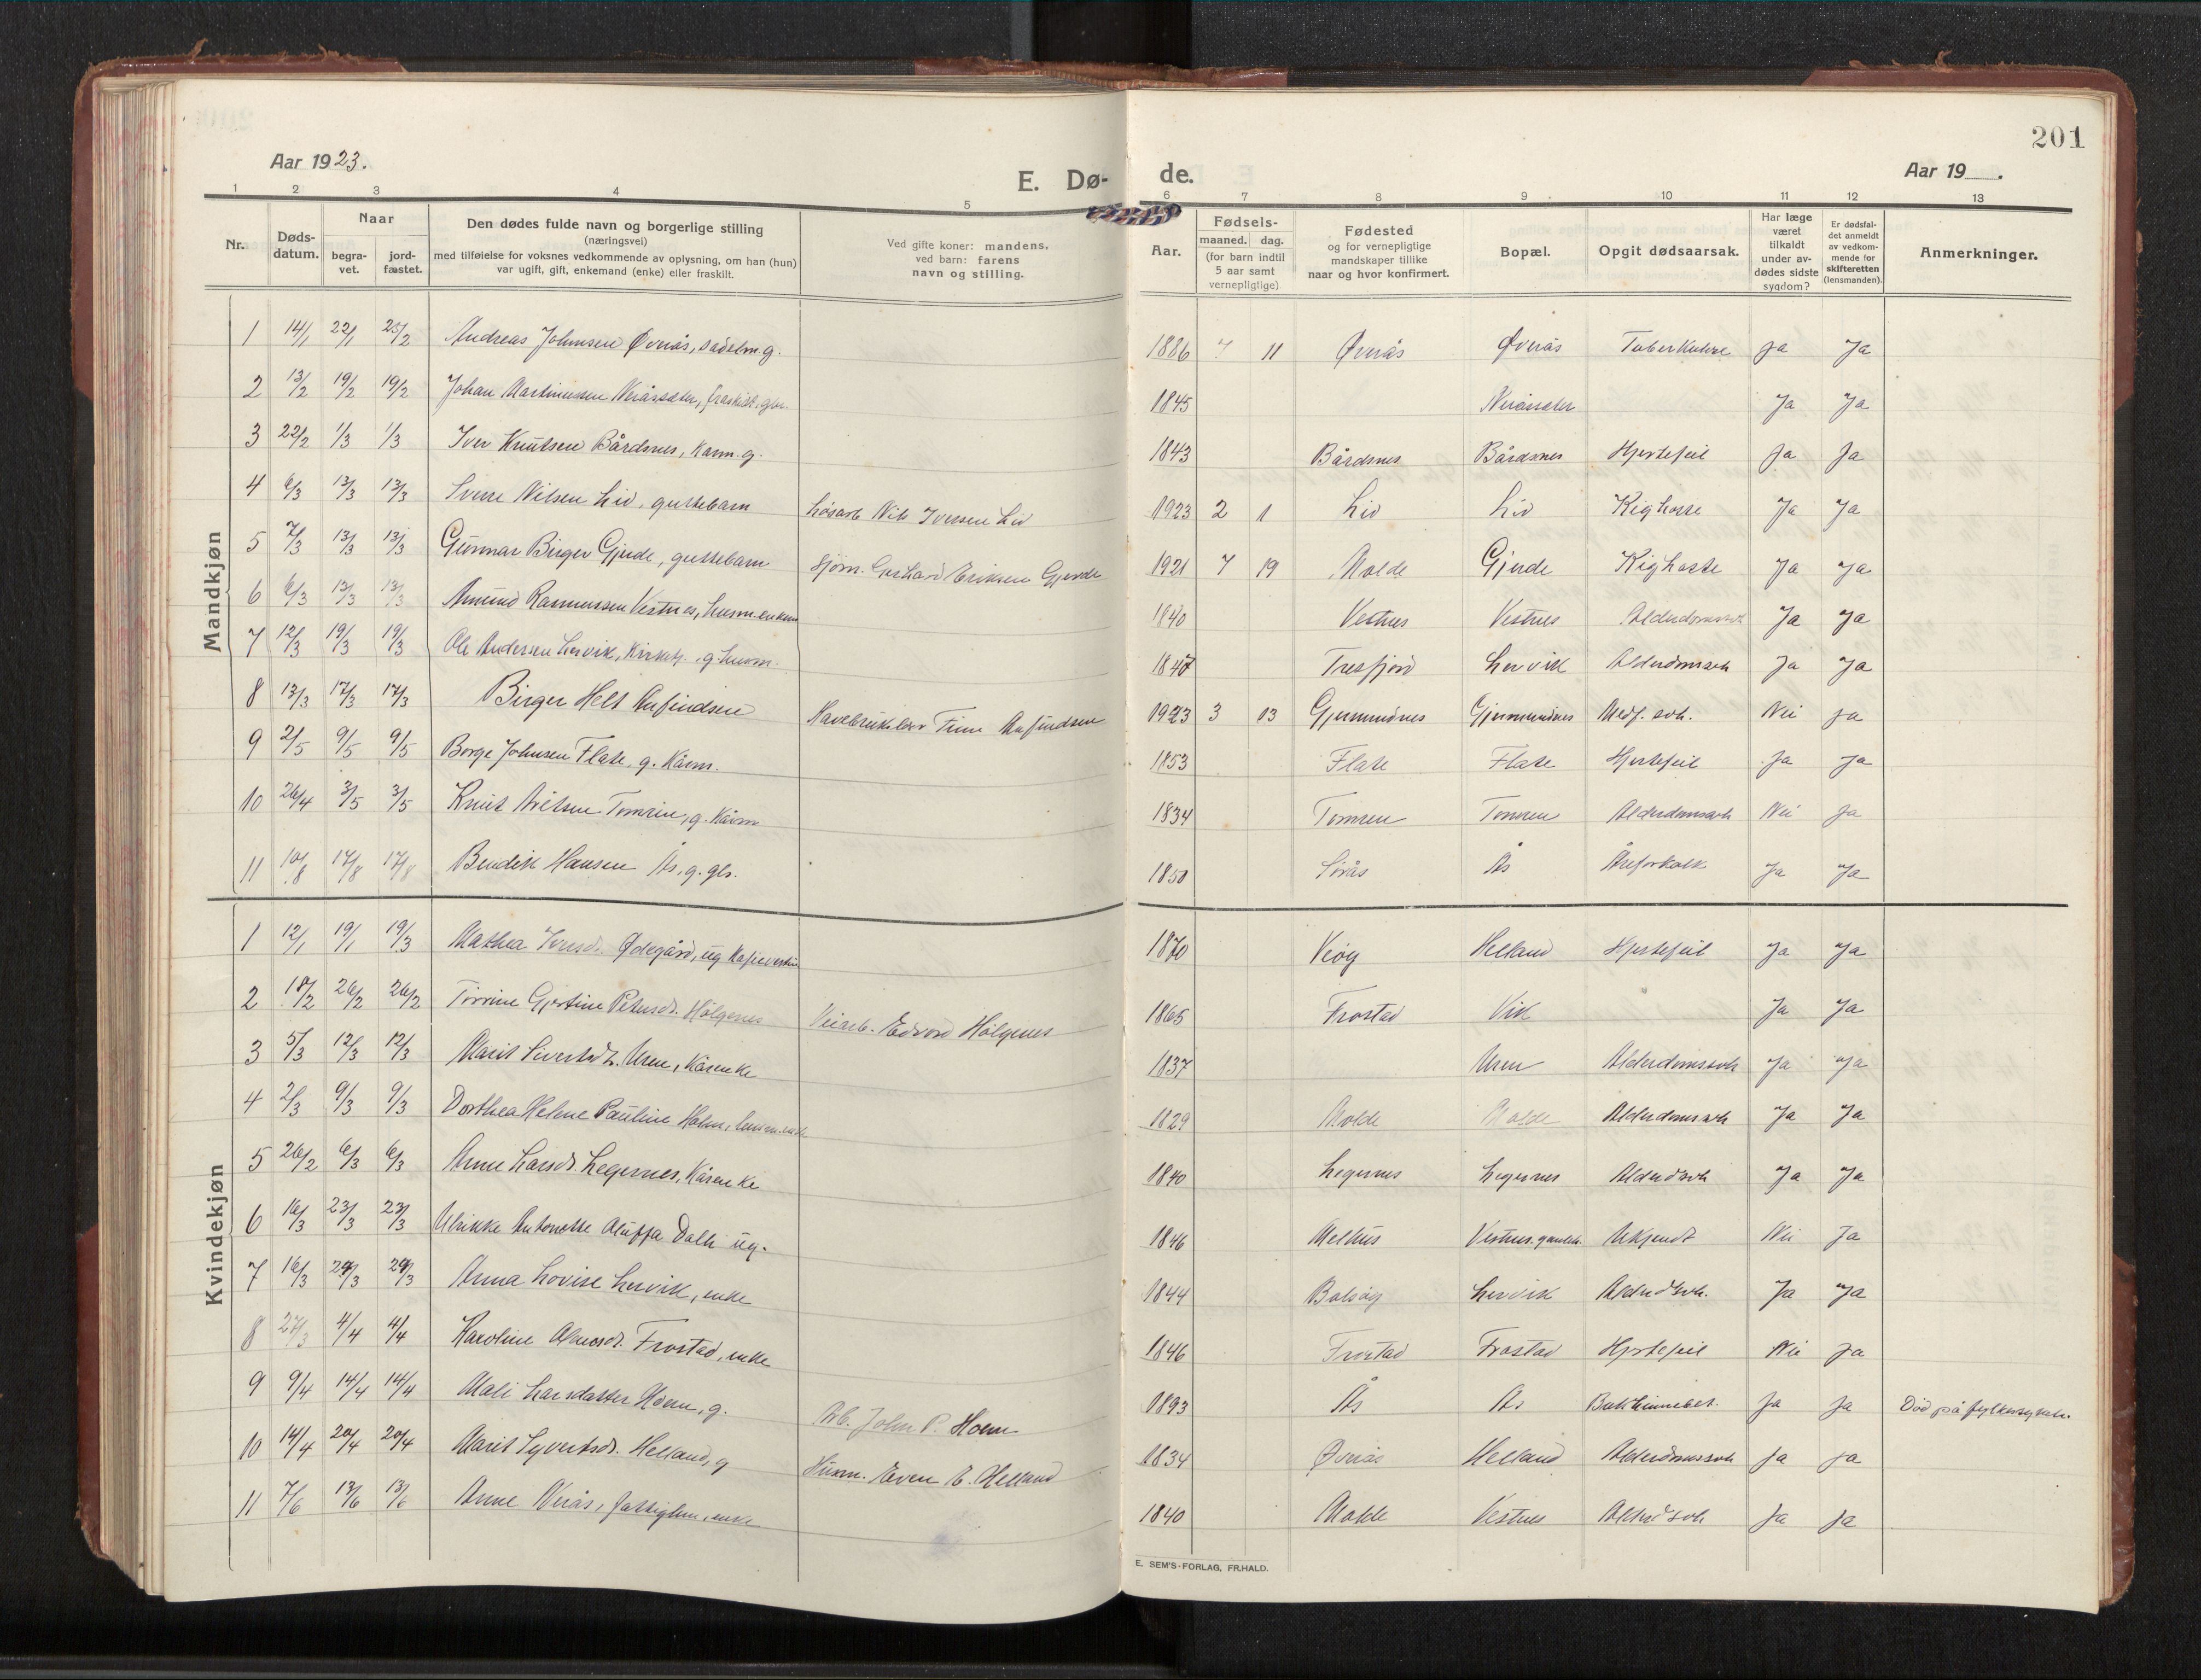 201
Aar 1923.
E. Dø-
de.
Aar 19 .
1 2 3 4 5 6 7 8 9 10 11 12 13
Nr.
Døds-
datum.
Naar
begra-
vet.
jord-
fæstet.
Den dødes fulde navn og borgerlige stilling
(næringsvei)
med tilføielse for voksnes vedkommende av oplysning, om han (hun)
var ugift, gift, enkemand (enke) eller fraskilt.
Ved gifte koner: mandens,
ved barn: farens
navn og stilling.
Aar.
Fødsels-
maaned. dag.
(for barn indtil
5 aar samt
vernepligtige)
Fødested
og for vernepligtige
mandskaper tillike
naar og hvor konfirmert.
Bopæl.
Opgit dødsaarsak.
Har læge
været
tilkaldt
under av-
dødes sidste
sygdom?
Er dødsfal-
det anmeldt
av vedkom-
mende for
skifteretten
(lensmanden).
Anmerkninger.
Mandkjøn
1 14/1 22/1 25/2 Andreas Johnsen Øveraas, sadelm. g. 1886 7 11 Øverås Øverås Tuberkulose Ja Ja
2 13/2 19/2 19/2 Johan Martinussen Neråssæter, fraskilt, gbr. 1845 Neråssæter Ja Ja
3 22/2 1/3 1/3 Iver Knutsen Bårdsnes, Kårm. g. 1843 Bårdsnes Bårdsnes Hjertefeil Ja Ja
4 6/3 13/3 13/3 Sverre Nilsen Lid, guttebarn Løsarb Nils Iversen Lid 1923 2 1 Lid Lid Kighoste Ja Ja
5 7/3 13/3 13/3 Gunnar Birger Gjerde, guttebarn Sjøm. Gerhard Eriksen Gjerde 1921 7 19 Molde Gjerde Kighoste Ja Ja
6 6/3 13/3 13/3 Amund Rasmussen Vestnes, husm. enkem 1840 Vestnes Vestnes Alderdomssvk Ja Ja
7 12/3 19/3 19/3 Ole Andersen Lervik, Kirketj. g. husm. 1847 Tresfjord Lervik Alderdomssvk Ja Ja
8 13/3 17/3 17/3 Birger Helt Anfindsen Havebrukslær Finn Anfindsen 1923 3 13 Gjermundnes Gjermundnes Medf. svk. Nei Ja
9 2/5 9/5 9/5 Børge Johnsen Flate, g. Kårm. 1853 Flate Flate Hjertefeil Ja Ja
10 26/4 3/5 3/5 Knut Tomren, g. Kårm 1834 Tomren Tomren Alderdomssvk Nei Ja
11 10/8 17/8 17/8 Bendik Hansen Ås, g. gbr. 1850 Sørås Ås Åreforkalk Ja Ja
Kvindekjøn
1 12/1 19/1 19/3 Mathea Iversd. Ødegård, ug Kafeevertin 1870 Veøy Helland Hjertefeil Ja Ja
2 18/2 26/2 26/2 Gjertine Petersd. Holgenes Veiarb. Edvard Holgenes 1865 Frostad Vik Ja Ja
3 5/3 12/3 12/3 Marit Sivertsdt. Uren, Kårenke 1837 Uren Alderdomssvk Ja Ja
4 2/3 9/3 9/3 Dorthea Helene Pauline Holm, lensm. enke 1829 Molde Molde Alderdomssvk Ja Ja
5 26/2 6/3 6/3 Anne Larsdt. Legernes, Kårenke 1840 Legernes Legernes Alderdsvk Ja Ja
6 16/3 23/3 23/3 Ulrikke Antonette Aluffa Dahl ug. 1846 Melhus Vestnes gamleh. Ukjendt Nei Ja
7 16/3 24/3 24/3 Anna Lovise Lervik, enke 1844 Bolsøy Lervik Alderdsvk. Ja Ja
8 27/3 4/4 4/4 Karoline Frostad, enke 1846 Frostad Frostad Hjertefeil Nei Ja
9 9/4 14/4 14/4 Mali Larsdatter Hoem, g. Arb. John P. Hoem 1893 Ås Ås Bukhinnebet. Ja Ja Død på fylkessykeh.
10 14/4 20/4 20/4 Marit Syvertsdt. Helland, g Husm. Even E. Helland 1834 Øverås Helland Alderdomssvk Ja Ja
11 7/6 13/6 13/6 Anne Nerås, fattiglem, enke 1840 Molde Vestnes Alderdsvk Ja Ja
E. SEM'S-FORLAG, FR.HALD.